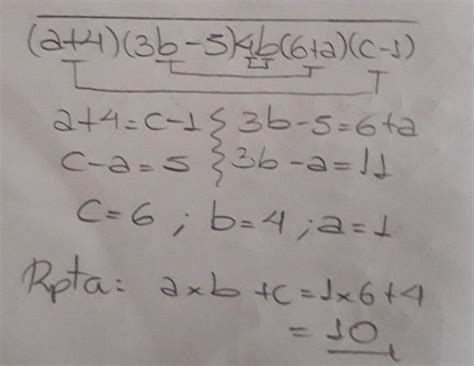 (a+4)(3b-5)4b(6+a)(c-1)
a+4=c-1 { 3b-5=6+a
c-a=5 { 3b-a=11
c=6 ; b=4 ; a=1
Rpta: axb+c=1x6+4
=10